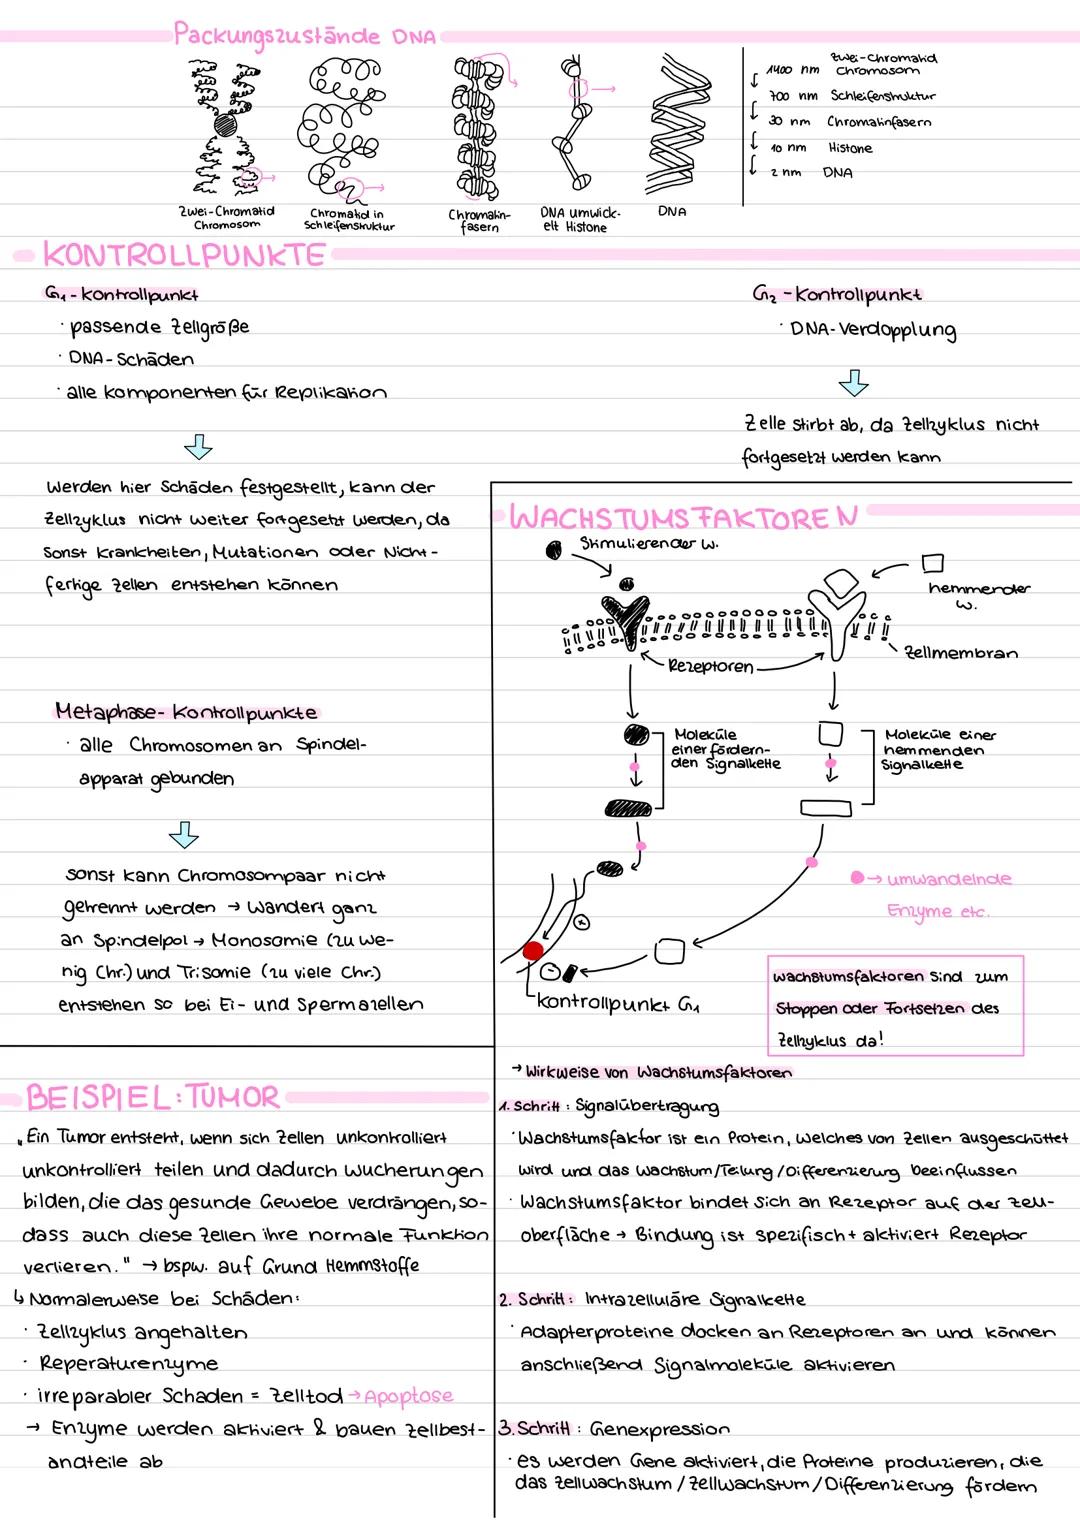 Packungszustände DNA
Zwei-Chromatid
Chromosom
Chromatid in
Schleifenstruktur
Chromatin-
fasern
DNA umwick-
elt Histone
DNA
1400 nm Zwei-Chromatid
Chromosom
700 nm Schleifenstruktur
30 nm Chromatinfasern
10 nm Histone
2 nm DNA
KONTROLLPUNKTE
G1 - Kontrollpunkt
· passende Zellgröße
· DNA-Schäden
· alle Komponenten für Replikation
Werden hier Schäden festgestellt, kann der
Zellzyklus nicht weiter fortgesetzt werden, da
sonst Krankheiten, Mutationen oder Nicht-
fertige Zellen entstehen können
G2 - Kontrollpunkt
· DNA-Verdopplung
Zelle stirbt ab, da Zellzyklus nicht
fortgesetzt werden kann
Metaphase-Kontrollpunkte
· alle Chromosomen an Spindel-
apparat gebunden
sonst kann Chromosompaar nicht
getrennt werden → Wandert ganz
an Spindelpol → Monosomie (zu we-
nig Chr.) und Trisomie (zu viele Chr.)
entstehen so bei Ei- und Spermazellen
WACHSTUMSFAKTOREN
Stimulierender W.
hemmender
W.
Zellmembran
Rezeptoren
Moleküle
einer fördern-
den Signalkette
Moleküle einer
hemmenden
Signalkette
→ umwandelnde
Enzyme etc.
+
-
Kontrollpunkt G1
Wachstumsfaktoren sind zum
Stoppen oder Fortsetzen des
Zellzyklus da!
→ Wirkweise von Wachstumsfaktoren
1. Schritt : Signalübertragung
· Wachstumsfaktor ist ein Protein, welches von Zellen ausgeschüttet
wird und das Wachstum/Teilung/Differenzierung beeinflussen
· Wachstumsfaktor bindet sich an Rezeptor auf der Zell-
oberfläche → Bindung ist spezifisch + aktiviert Rezeptor
2. Schritt : Intrazelluläre Signalkette
· Adapterproteine docken an Rezeptoren an und können
anschließend Signalmoleküle aktivieren
3. Schritt : Genexpression
· es werden Gene aktiviert, die Proteine produzieren, die
das Zellwachstum/Zellwachstum/Differenzierung fördern
BEISPIEL: TUMOR
„Ein Tumor entsteht, wenn sich Zellen unkontrolliert
unkontrolliert teilen und dadurch Wucherungen
bilden, die das gesunde Gewebe verdrängen, so-
dass auch diese Zellen ihre normale Funktion
verlieren." → bspw. auf Grund Hemmstoffe
↳ Normalerweise bei Schäden:
· Zellzyklus angehalten
· Reperaturenzyme
· irreparabler Schaden = Zelltod → Apoptose
→ Enzyme werden aktiviert & bauen Zellbest-
andteile ab